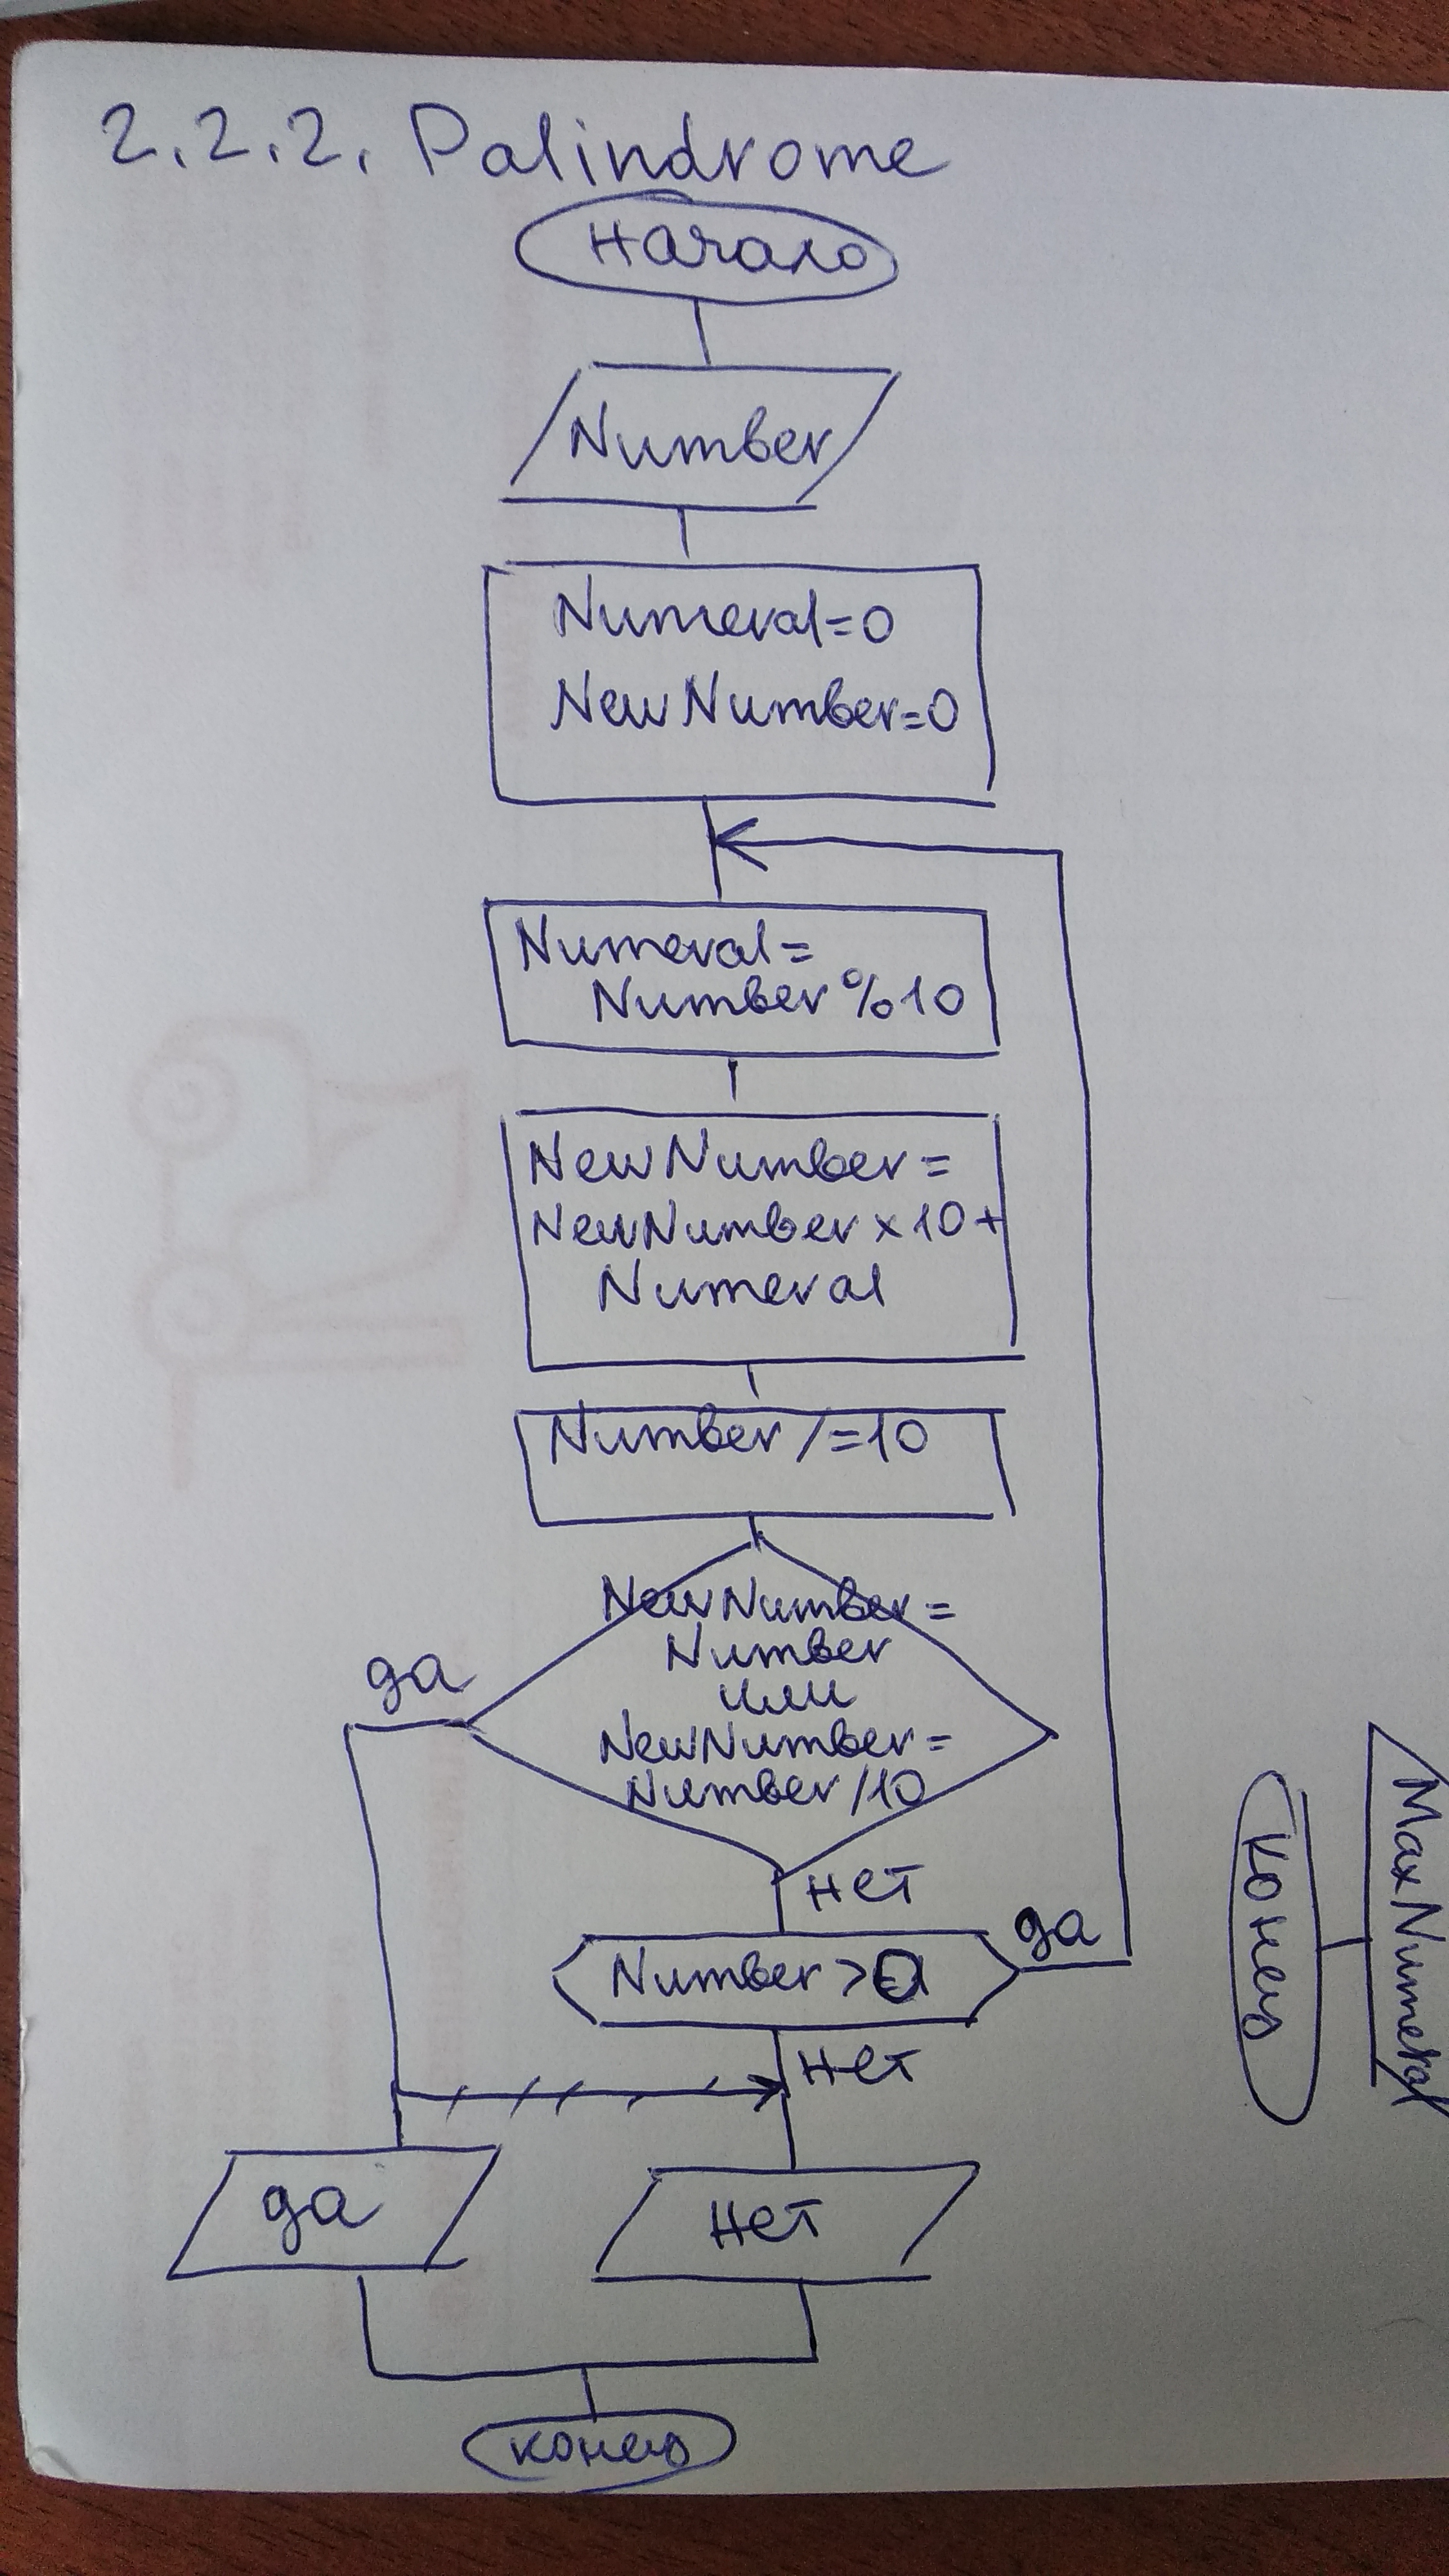 2.2.2. Palindrome
Начало
Number
Numeral=0
NewNumber=0
Numeral=
Number%10
NewNumber=
NewNumber×10+
Numeral
Number/=10
NewNumber=
Number
или
NewNumber=
Number/10
да
нет
Number>0
да
нет
да
нет
конец
конец
MaxNumeral